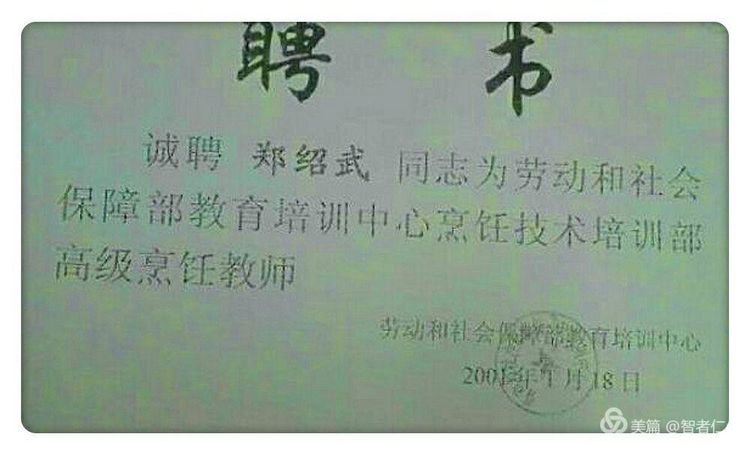 聘书
诚聘 郑绍武 同志为劳动和社会
保障部教育培训中心烹饪技术培训部
高级烹饪教师
劳动和社会保障部教育培训中心
2001年1月18日
美篇 @智者仁